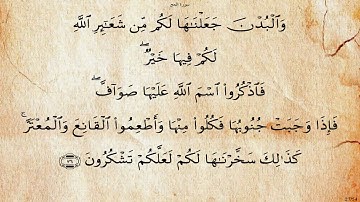 سورة الحج
وَٱلْبُدْنَ جَعَلْنَـٰهَا لَكُم مِّن شَعَـٰٓئِرِ ٱللَّهِ
لَكُمْ فِيهَا خَيْرٌ ۖ
فَٱذْكُرُوا۟ ٱسْمَ ٱللَّهِ عَلَيْهَا صَوَآفَّ ۖ
فَإِذَا وَجَبَتْ جُنُوبُهَا فَكُلُوا۟ مِنْهَا وَأَطْعِمُوا۟ ٱلْقَانِعَ وَٱلْمُعْتَرَّ ۚ
كَذَٰلِكَ سَخَّرْنَـٰهَا لَكُمْ لَعَلَّكُمْ تَشْكُرُونَ ٣٦